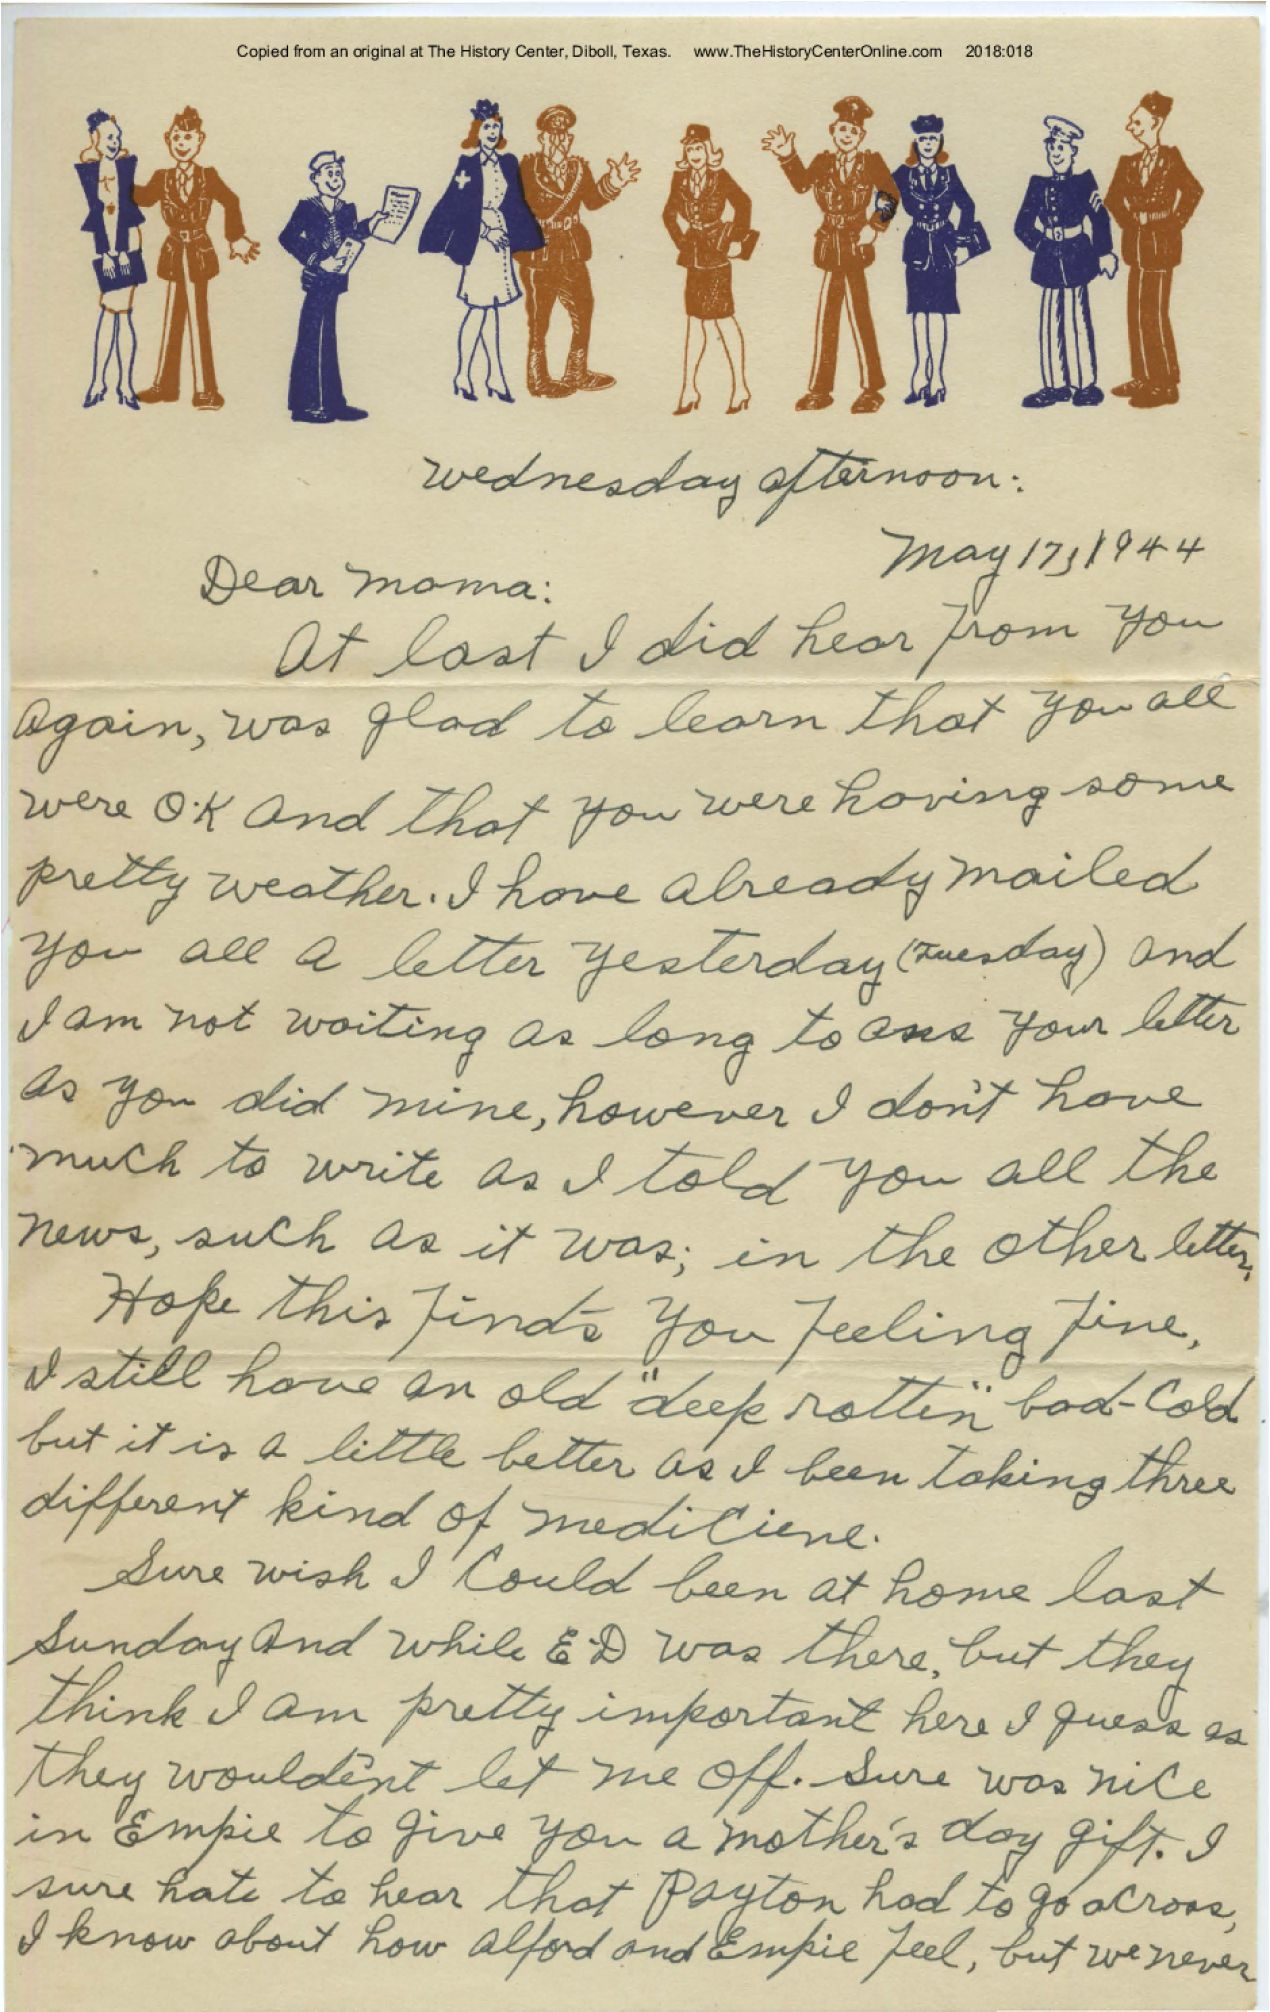 Copied from an original at The History Center, Diboll, Texas. www.TheHistoryCenterOnline.com 2018:018
Wednesday afternoon:
May 17, 1944
Dear Moma:
At last I did hear from you
again, was glad to learn that you all
were O.K and that you were having some
pretty weather. I have already mailed
you all a letter yesterday (Tuesday) and
I am not waiting as long to ans your letter
as you did mine, however I don't have
much to write as I told you all the
news, such as it was; in the other letter.
Hope this find's you feeling fine,
I still have an old "deep rotten" bad-cold
but it is a little better as I been taking three
different kind of mediciene.
Sure wish I could been at home last
Sunday and while E.D was there, but they
think I am pretty important here I guess as
they would'ent let me off. Sure was nice
in Empie to give you a mother's day gift. I
sure hate to hear that Payton had to go across,
I know about how Alford and Empie feel, but we never